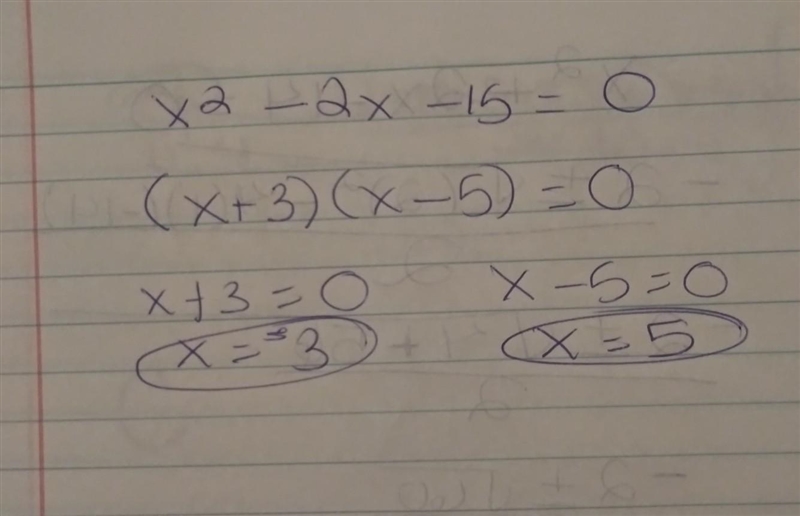 x² - 2x - 15 = 0
(x+3)(x-5) = 0
x+3 = 0 x-5 = 0
x = -3 x = 5